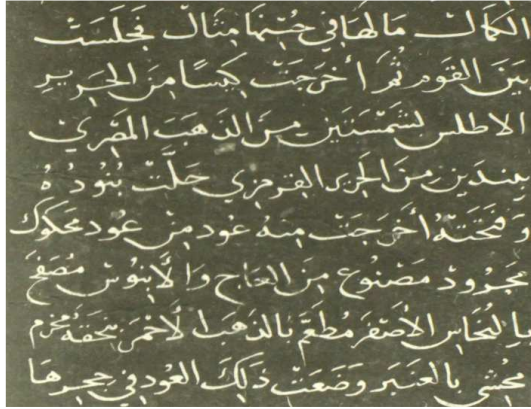 الكمال مالها في حسنها مثال فجلست
بين القوم ثم أخرجت كيسا من الحرير
الاطلس بشمستين من الذهب المصري
ببندين من الحرير القرمزي حلت بنوده
وفتحته أخرجت منه عود من عود محكوك
مجرود مصنوع من العاج والابنوس مصفح
بالنحاس الأصفر مطعم بالذهب الأحمر مخرم
محشي بالعنبر وضعت ذلك العود في حجرها